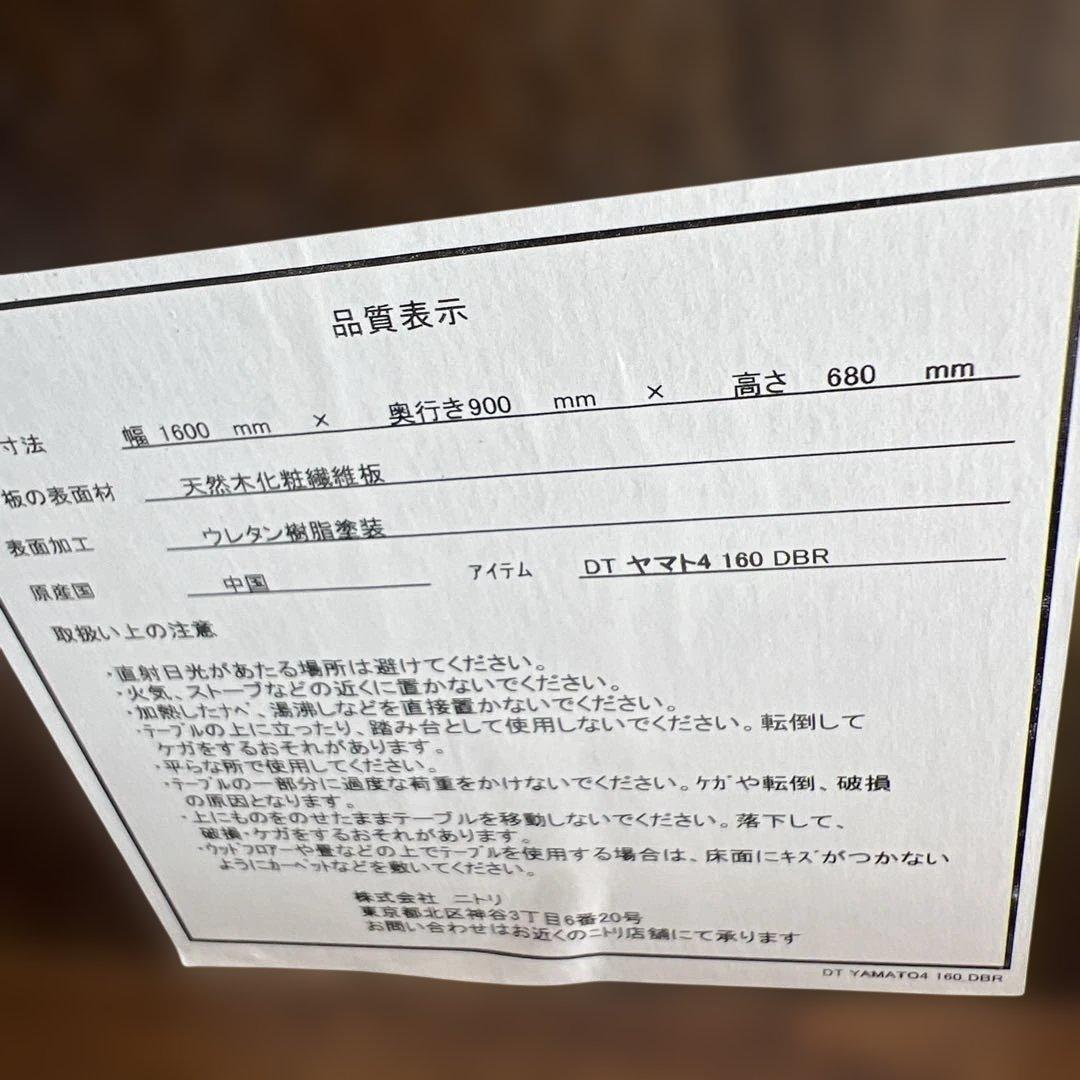 品質表示
寸法 幅 1600 mm × 奥行き900 mm × 高さ 680 mm
板の表面材 天然木化粧繊維板
表面加工 ウレタン樹脂塗装
原産国 中国 アイテム DT ヤマト4 160 DBR
取扱い上の注意
・直射日光があたる場所は避けてください。
・火気、ストーブなどの近くに置かないでください。
・加熱したナベ、湯沸しなどを直接置かないでください。
・テーブルの上に立ったり、踏み台として使用しないでください。転倒して
ケガをするおそれがあります。
・平らな所で使用してください。
・テーブルの一部分に過度な荷重をかけないでください。ケガや転倒、破損
の原因となります。
・上にものをのせたままテーブルを移動しないでください。落下して、
破損・ケガをするおそれがあります。
・ウッドフロアーや畳などの上でテーブルを使用する場合は、床面にキズがつかない
ようにカーペットなどを敷いてください。
株式会社 ニトリ
東京都北区神谷3丁目6番20号
お問い合わせはお近くのニトリ店舗にて承ります
DT YAMATO4 160 DBR